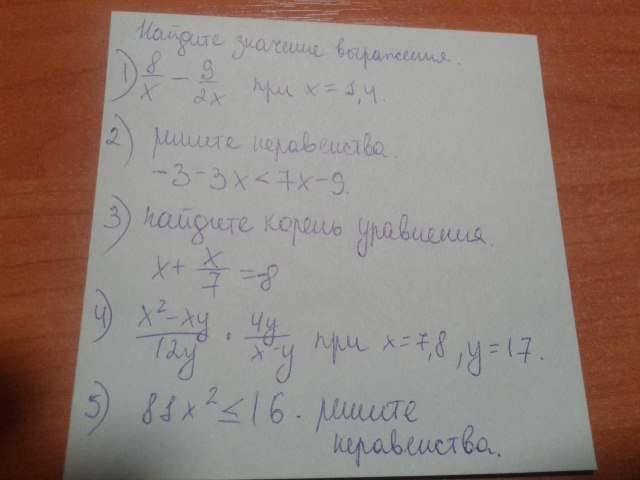 Найдите значение выражения.
1) 8/x − 9/2x при x = 1,4.
2) решите неравенства.
−3−3x < 7x−9.
3) найдите корень уравнения.
x + x/7 = −8
4) x²−xy/12y · 4y/x−y при x=7,8, y=17.
5) 81x² ≤ 16. решите
неравенства.